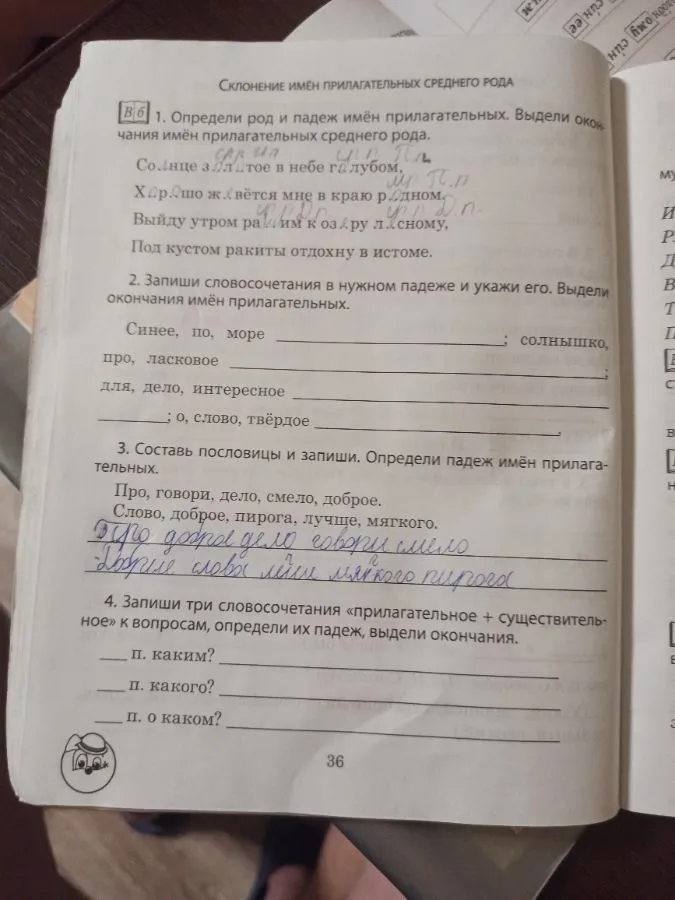 СКЛОНЕНИЕ ИМЁН ПРИЛАГАТЕЛЬНЫХ СРЕДНЕГО РОДА
В б 1. Определи род и падеж имён прилагательных. Выдели окон-
чания имён прилагательных среднего рода.
ср.р И.п П.п.
Солнце золотое в небе голубом,
П.п
Хорошо живётся мне в краю родном,
Д.п. Д.п.
Выйду утром ранним к озеру лесному,
Под кустом ракиты отдохну в истоме.
2. Запиши словосочетания в нужном падеже и укажи его. Выдели
окончания имён прилагательных.
Синее, по, море ; солнышко,
про, ласковое ;
для, дело, интересное
; о, слово, твёрдое .
3. Составь пословицы и запиши. Определи падеж имён прилага-
тельных.
Про, говори, дело, смело, доброе.
Слово, доброе, пирога, лучше, мягкого.
Про доброе дело говори смело
мягкого пирога
4. Запиши три словосочетания «прилагательное + существитель-
ное» к вопросам, определи их падеж, выдели окончания.
п. каким?
п. какого?
п. о каком?
36